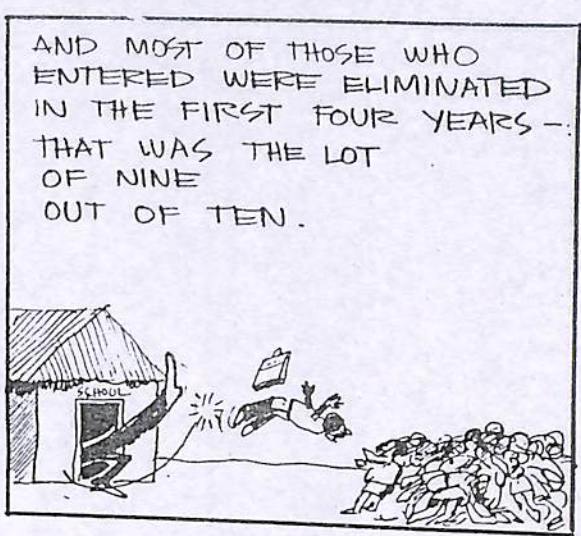 AND MOST OF THOSE WHO
ENTERED WERE ELIMINATED
IN THE FIRST FOUR YEARS –
THAT WAS THE LOT
OF NINE
OUT OF TEN.
SCHOOL